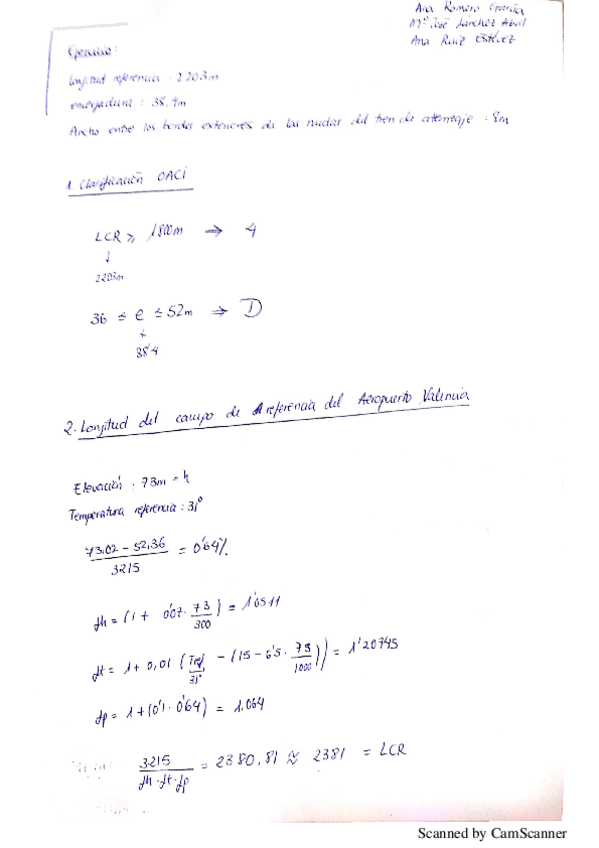 Ana Romero Granja
Mª José Sánchez Abril
Ana Ruiz Estévez
Ejercicio:
longitud referencia : 2203m
envergadura : 38,4m
Ancho entre los bordes exteriores de las ruedas del tren de aterrizaje : 9m
1. Clasificación OACI
LCR ≥ 1800m → 4
↓
2203m
36 ≤ e ≤ 52m ⇒ D
↓
38'4
2. Longitud del campo de referencia del Aeropuerto Valencia
Elevación : 73m = h
Temperatura referencia : 31º
73,02 - 52,36 / 3215 = 0'64%
fh = (1 + 0'07 · 73/300) = 1'0511
ft = 1 + 0,01 (Tref/31º - (15 - 6'5 · 73/1000)) = 1'20745
fp = 1 + (0'1 · 0'64) = 1,064
3215 / fh · ft · fp = 2380,81 ≈ 2381 = LCR
Scanned by CamScanner